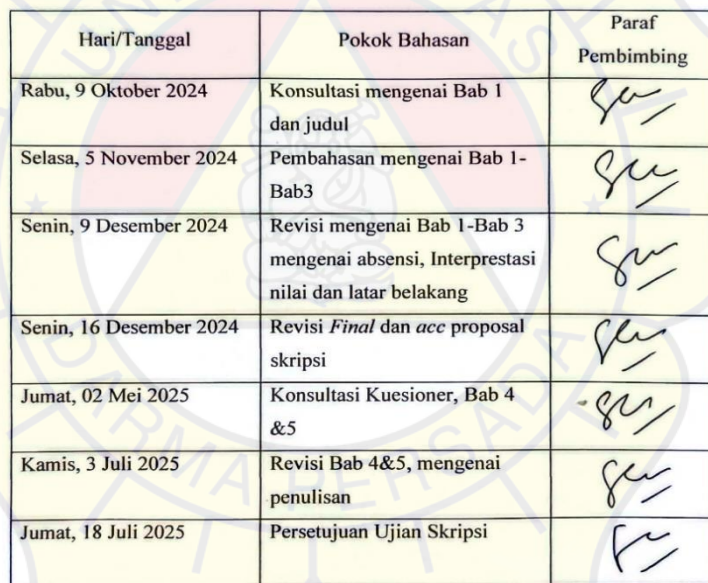 Hari/Tanggal
Pokok Bahasan
Paraf
Pembimbing
Rabu, 9 Oktober 2024
Konsultasi mengenai Bab 1
dan judul
Selasa, 5 November 2024
Pembahasan mengenai Bab 1-
Bab3
Senin, 9 Desember 2024
Revisi mengenai Bab 1-Bab 3
mengenai absensi, Interprestasi
nilai dan latar belakang
Senin, 16 Desember 2024
Revisi Final dan acc proposal
skripsi
Jumat, 02 Mei 2025
Konsultasi Kuesioner, Bab 4
&5
Kamis, 3 Juli 2025
Revisi Bab 4&5, mengenai
penulisan
Jumat, 18 Juli 2025
Persetujuan Ujian Skripsi
DARMA PERSADA